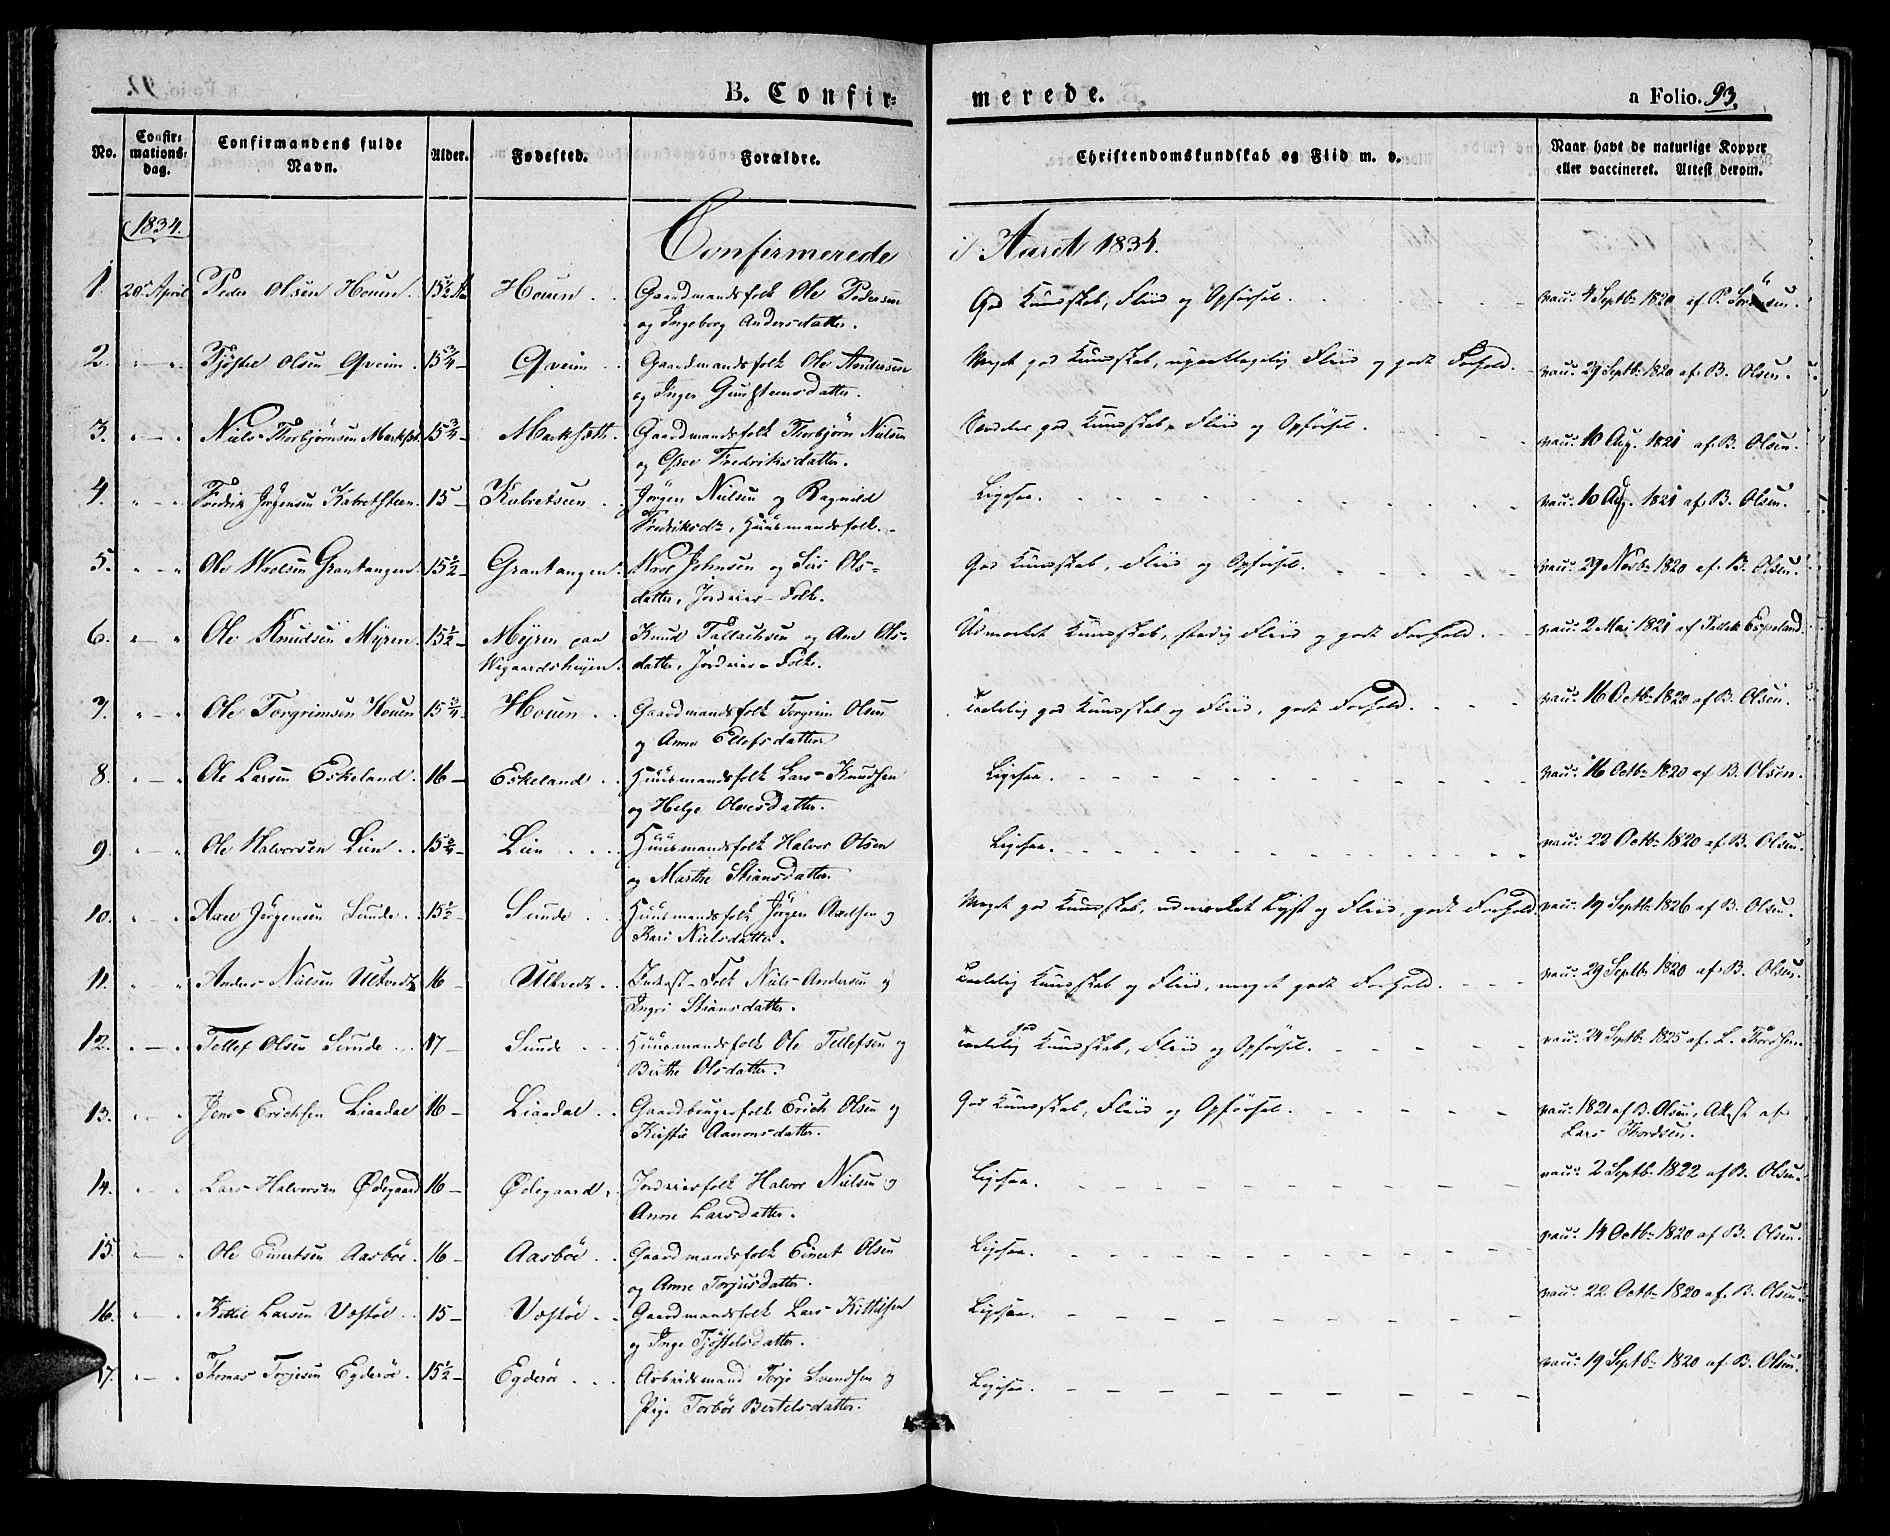 B. Confir=
merede.
a Folio. 93.
No.
Confir=
mations=
dag.
Confirmandens fulde
Navn.
Alder.
Fødested.
Forældre.
Christendomskundskab og Flid m. v.
Naar havt de naturlige Kopper
eller vaccineret. Attest derom.
1834.
Confirmerede
i Aaret 1834.
1. 20de April Peder Olsen Houen. 15 1/2 Houen. Gaardmandsfolk Ole Pedersen
og Ingeborg Andersdatter.
God Kundskab, Fliid og Opførsel. vac: 4 Septbr 1820 af P.
2. " — " Olsen Qveim. 15 3/4 Qveim Gaardmandsfolk Ole Andersen
og Inger
Meget god Kundskab, Fliid og godt Forhold. vac: 29 Septbr 1820 af B. Olsen.
3. " — " Niels Thorbjørnsen 15 3/4 Gaardmandsfolk Thorbjørn Nielsen
og Fredriksdatter.
Særdeles god Kundskab, Fliid og Opførsel. vac: 10 Aug. 1821 af B. Olsen.
4. " — " Fredrik Jørgensen 15 Jørgen Nielsen og Ragnild
Fredriksdr, Huusmandsfolk.
Ligesaa. vac: 10 Aug. 1821 af B. Olsen.
5. " — " Ole Grantangen. 15 1/2 Grantangen. Johnsen og Siri Ols=
datter, Folk.
God Kundskab, Fliid og Opførsel. vac: 29 Novbr 1820 af B. Olsen.
6. " — " Ole Knudsen Myren. 15 1/2 Myren paa
Wegaardsheyen. Knud Tallachsen og Ols=
datter, Folk.
Udmærket Kundskab, stadig Fliid og godt Forhold. vac: 2 Mai 1821 af Espeland.
7. " — " Ole Torgrimsen Houen 15 3/4 Houen Gaardmandsfolk Torgrim Olsen
og Anne Ellefsdatter
Taalelig god Kundskab og Fliid, godt Forhold. vac: 16 Octbr 1820 af B. Olsen.
8. " — " Ole Larsen Eskeland. 16 Eskeland Huusmandsfolk Lars Knudsen
og Helge Olvesdatter.
Ligesaa. vac: 16 Octbr 1820 af B. Olsen.
9. " — " Ole Halvorsen Lien 15 3/4 Lien Huusmandsfolk Halvor Olsen
og Marthe Stiansdatter.
Ligesaa. vac: 22 Octbr 1820 af B. Olsen.
10. " " Jørgensen Sunde 15 1/2 Sunde Huusmandsfolk Jørgen Axelsen og
Kari Nielsdatter.
Meget god Kundskab, udmærket Lyst og Fliid, godt Forhold vac: 19 Septbr 1826 af B. Olsen.
11. " " Anders Nielsen Ulltvedt 16 Ulltvedt. Inderst-Folk Niels Andersen og
Ingri Stiansdatter.
Taalelig Kundskab og Fliid, meget godt Forhold. vac: 29 Septbr 1820 af B. Olsen.
12. " — " Tellef Olsen Sunde 17 Sunde Huusmandsfolk Ole Tellefsen og
Birthe Olsdatter.
Taalelig god Kundskab, Fliid og Opførsel. vac: 24 Septbr 1825 af L. Thordsen.
13. " — " Jens Erichsen Liaadal 16 Liaadal Gaardbrugerfolk Erich Olsen og
Kirstie Aanonsdatter.
God Kundskab, Fliid og Opførsel. vac: 1821 af B. Olsen, Attest af
Lars Thordsen.
14. " " Lars Halvorsen Ødegaard 16 Ødegaard. Halvor Nielsen og
Anne Larsdatter.
Ligesaa. vac: 2 Septbr 1822 af B. Olsen.
15. " — " Ole Einertsen Aasbøe. 16 Aasbøe Gaardmandsfolk Einert Olsen
og Anne Torjusdatter.
Ligesaa. vac: 14 Octbr 1820 af B. Olsen.
16. " — " Kittil Larsen Vestøl 15 Vestøl Gaardmandsfolk Lars Kittilsen
og Inge
Ligesaa. vac: 22 Octbr 1820 af B. Olsen.
17. " — " Thomas Torjesen Egderøe 15 1/2 Egderøe Arbeidsmand Torje Svendsen og
Pige Torbør Bertelsdatter.
Ligesaa. vac: 19 Septbr 1820 af B. Olsen.